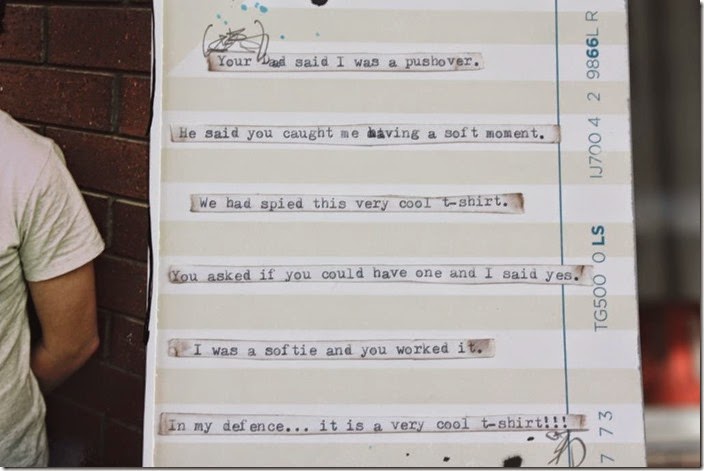 Your Dad said I was a pushover.
He said you caught me having a soft moment.
We had spied this very cool t-shirt.
You asked if you could have one and I said yes.
I was a softie and you worked it.
In my defence... it is a very cool t-shirt!!!
9866L R
IJ700 4 2
TG500 0 LS
7 7 3